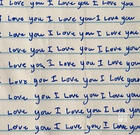 I Love you I Love you I Love
I Love you I Love you I Love
I Love you I Love you I Love
I Love you I Love you I Love
Love you I Love you I Love you
Love you I Love you I Love you
Love you I Love you I Love you
Love you I Love you I Love you
Love you I Love you I Love you